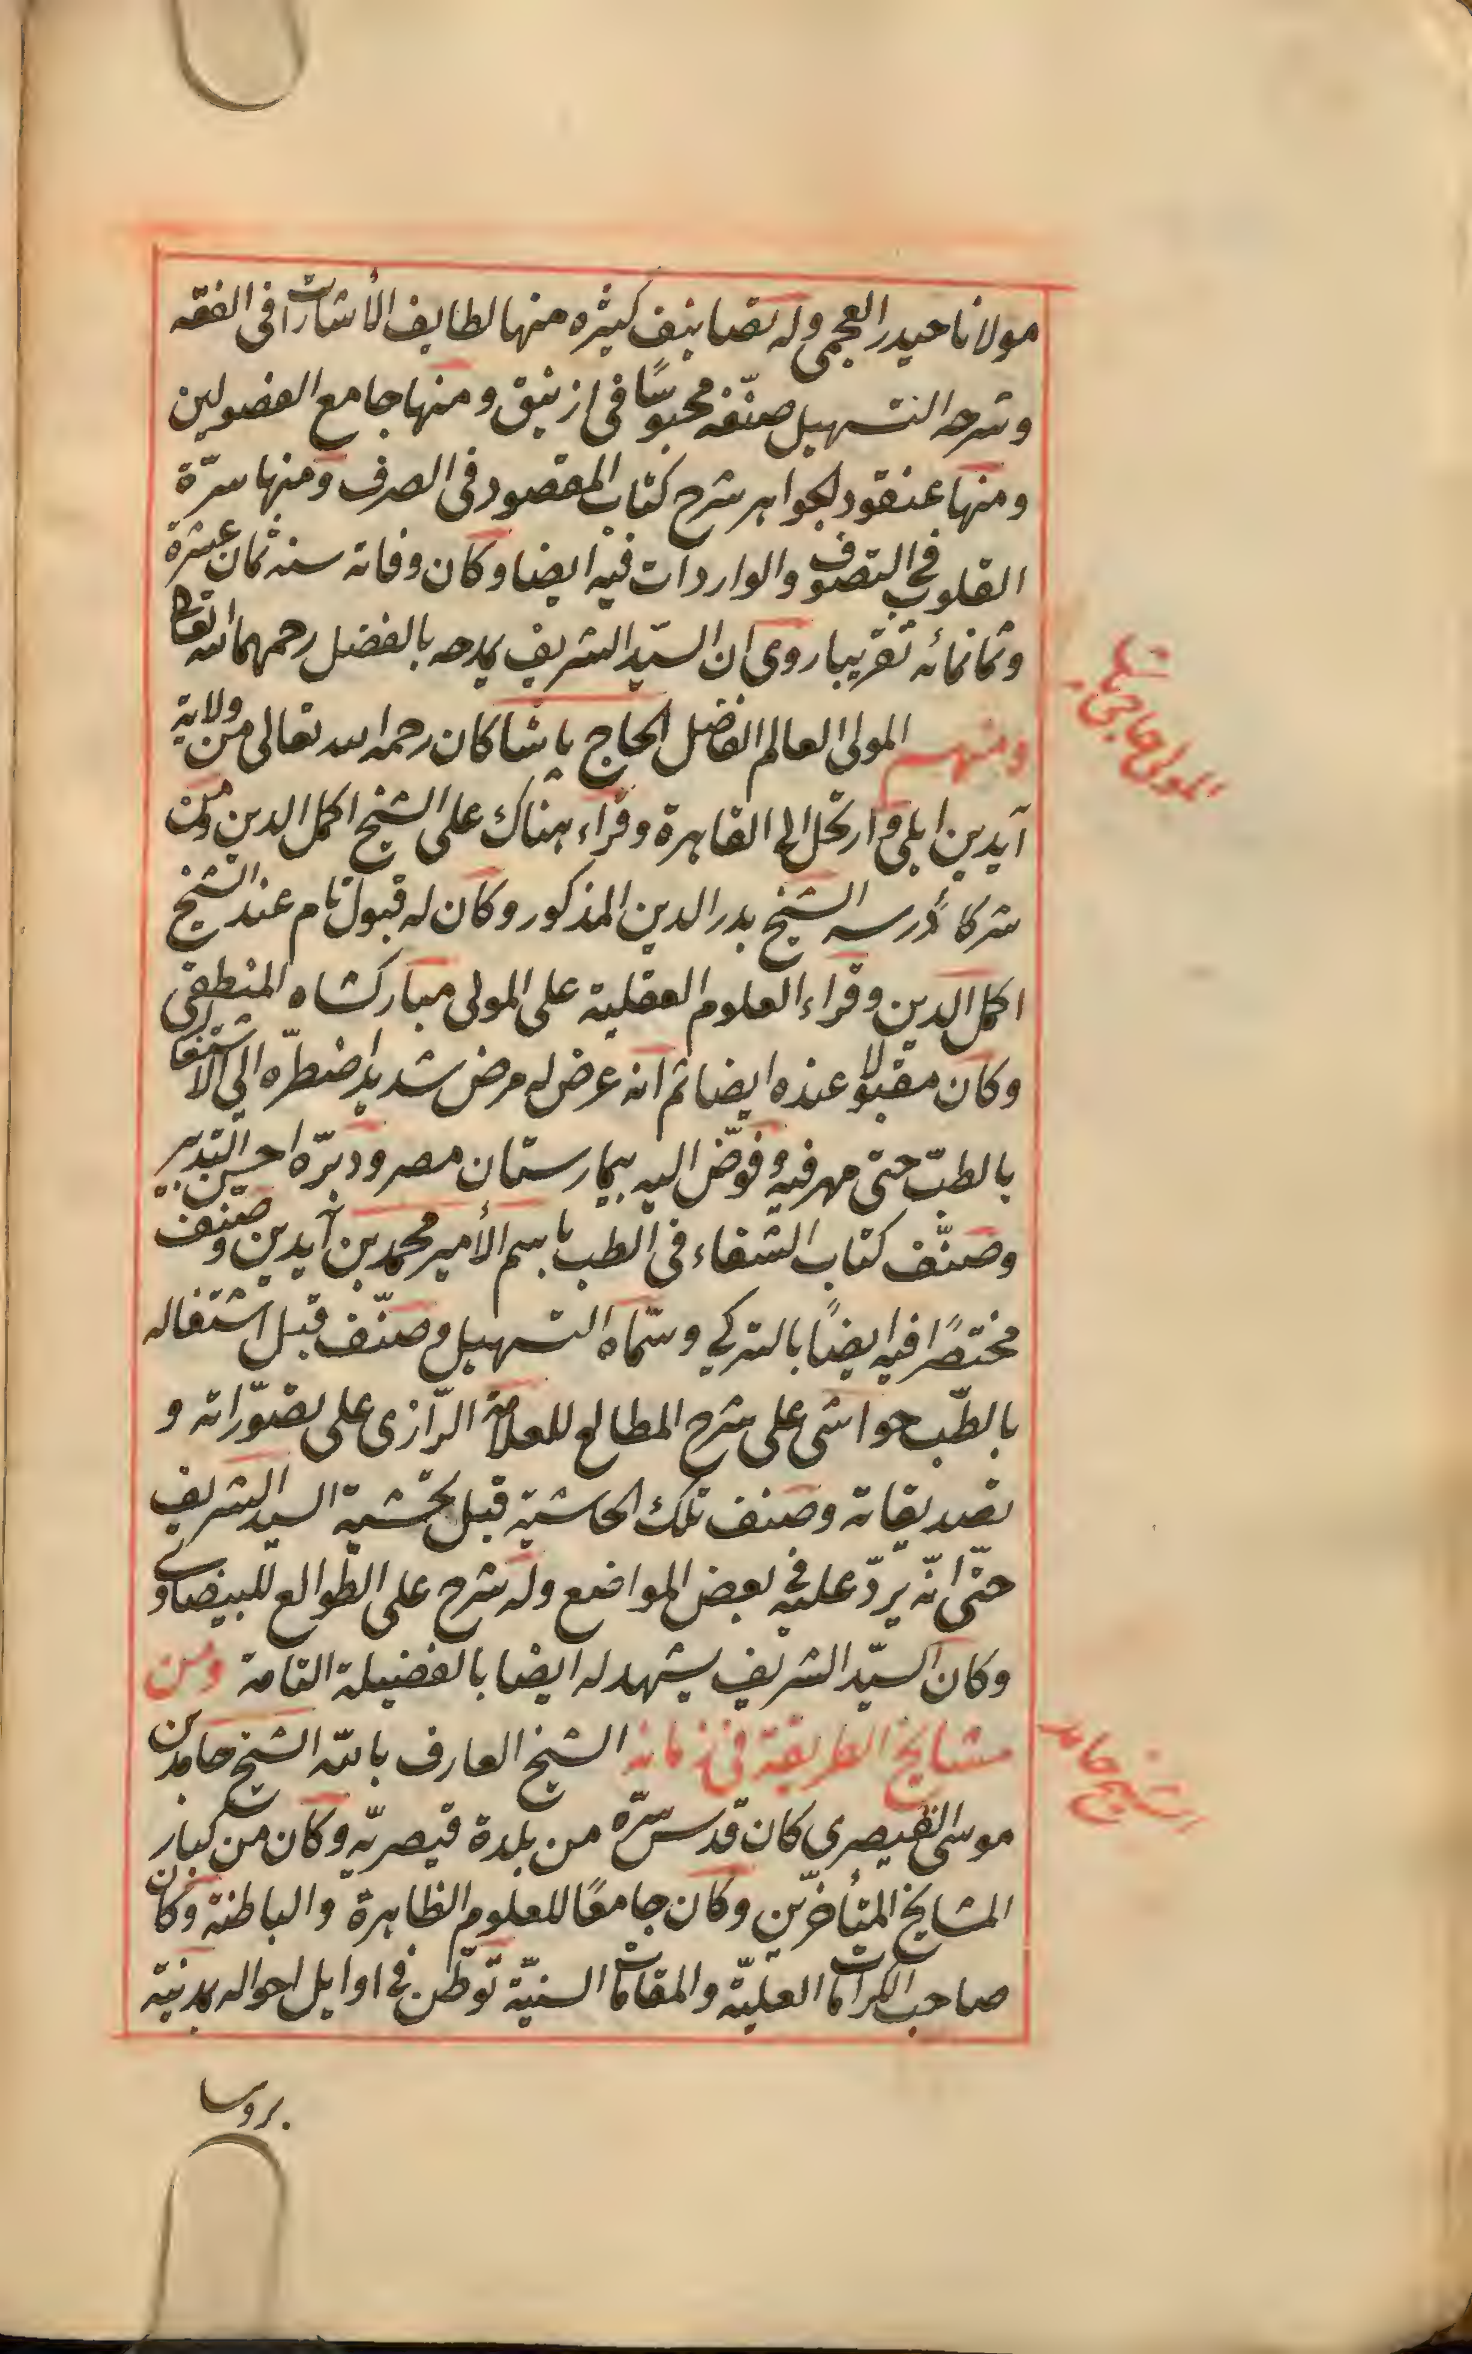 مولانا حيدر العجمى وله تصانيف كثيره منها لطايف الأشارات فى الفقه
وشرحه التسهيل صنّفه محبوسًا فى ازنيق ومنها جامع الفصولين
ومنها عنقود الجواهر شرح كتاب المقصود فى الصرف ومنها سرّة
القلوب فى التصوف والواردات فيه ايضا وكان وفاته سنه ثمان عشرة
وثمانمائه تقريبا روى ان السيّد الشريف يمدحه بالفضل رحمهما الله تعالى
ومنهم المولى العالم الفاضل الحاج باشا كان رحمه الله تعالى من ولاية
آيدين ايلى وارتحل الى القاهرة وقراء هناك على الشيخ اكمل الدين ومن
شركاء درسه الشيخ بدر الدين المذكور وكان له قبول تام عند الشيخ
اكمل الدين وقراء العلوم العقلية على المولى مباركشاه المنطقى
وكان مقبولا عنده ايضا ثم انه عرض له مرض شديد اضطرّه الى الاشتغال
بالطبّ حتى مهر فيه وفوّض اليه بيمارستان مصر ودبّره احسن التدبير
وصنّف كتاب الشفاء فى الطب باسم الأمير محمد بن آيدين وصنف
مختصرًا فيه ايضًا بالتركي وسمّاه التسهيل وصنّف قبل اشتغاله
بالطّب حواشى على شرح المطالع للعلامة الرّازى على تصوّراته و
تصديقاته وصنف تلك الحاشية قبل تحشية السيد الشريف
حتّى انّه يردّ عليه فى بعض المواضع وله شرح على الطّوالع للبيضاوى
وكان السيّد الشريف يشهد له ايضا بالفضيلة التامة ومن
مشايخ الطريقة فى زمانه الشيخ العارف بالله الشيخ حامد بن
موسى القيصرى كان قدس سرّه من بلدة قيصريّه وكان من كبار
المشايخ المتأخرّين وكان جامعًا للعلوم الظاهرة والباطنة وكان
صاحب الكرامات العليّة والمقامات السنيّة توطّن فى اوايل احواله بمدنية
بروسا
المولى حاجى باشا
الشيخ حامد